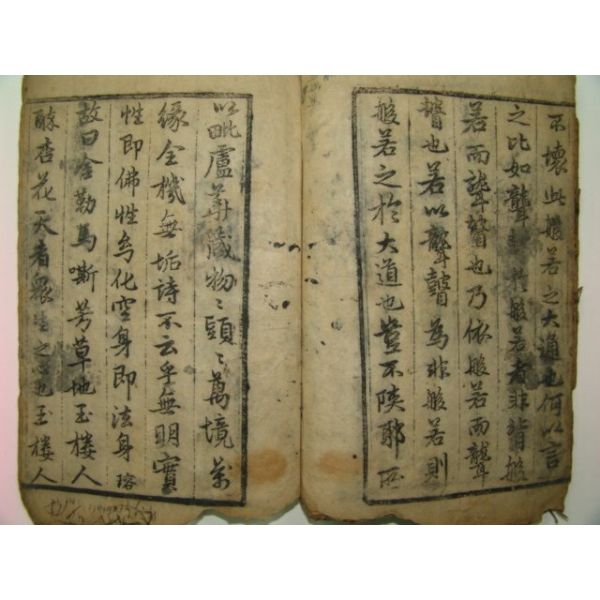 不壞此般若之大通也何以言
之比如聾瞽於般若者非背般
若而聾瞽也乃依般若而聾
瞽也若以聾瞽爲非般若則
般若之於大道也豈不陜耶
以毗盧華藏物〻頭〻萬境萬
緣全機無垢詩不云乎無明實
性即佛性幻化空身即法身
故曰金勒馬嘶芳草地玉樓人
醉杏花天者衆生之 也玉樓人